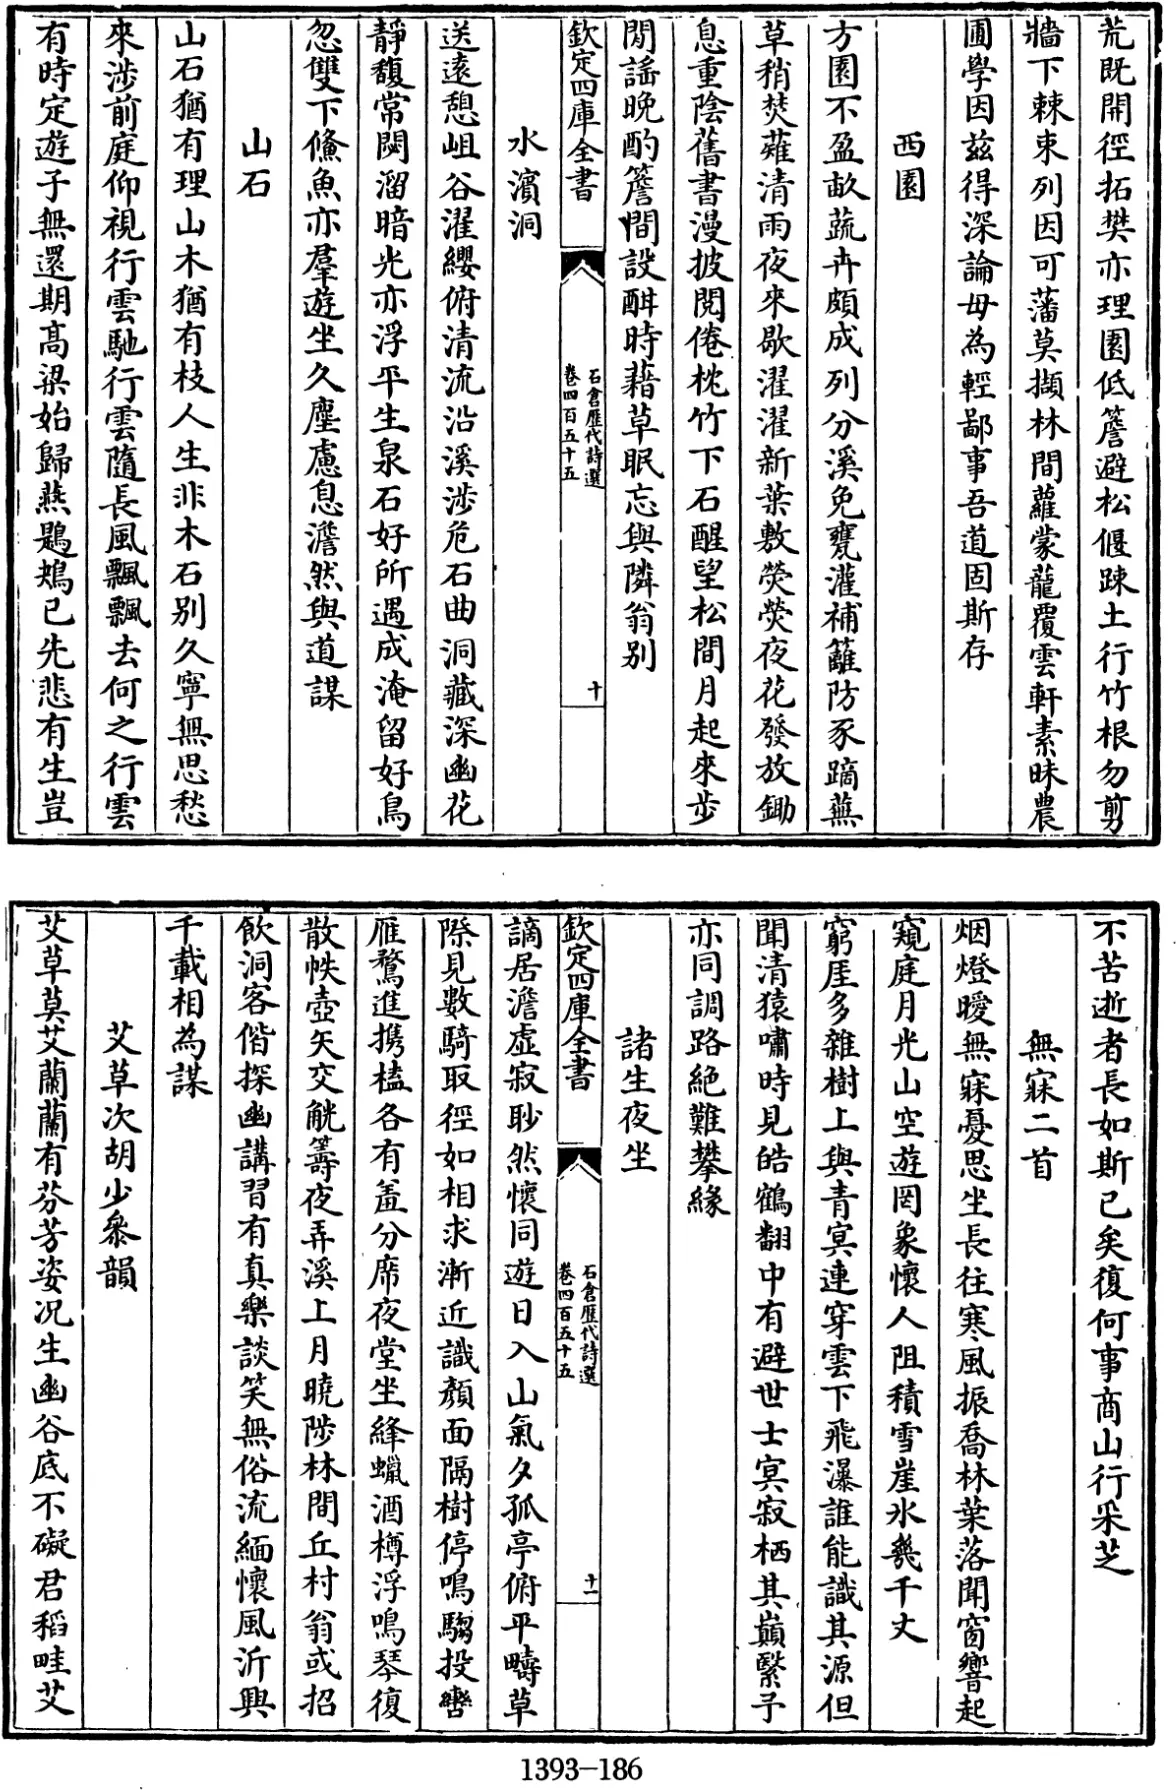 荒既開徑拓樊亦理園低簷避松偃踈土行竹根勿剪
牆下棘束列因可藩莫擷林間蘿蒙龍覆雲軒素昧農
圃學因兹得深論毋為輕鄙事吾道固斯存
西園
方園不盈畝蔬卉頗成列分溪免甕灌補籬防豕蹢蕪
草稍焚薙清雨夜來歇濯濯新葉敷熒熒夜花發放鋤
息重陰舊書漫披閱倦枕竹下石醒望松間月起來步
閒謡晚酌簷間設酣時藉草眠忘與隣翁别
欽定四庫全書
石倉歷代詩選
卷四百五十五
十
水濱洞
送遠憩岨谷濯纓俯清流沿溪涉危石曲洞藏深幽花
靜馥常閟溜暗光亦浮平生泉石好所遇成淹留好鳥
忽雙下鯈魚亦羣遊坐久塵慮息澹然與道謀
山石
山石猶有理山木猶有枝人生非木石别久寧無思愁
來涉前庭仰視行雲馳行雲隨長風飄飄去何之行雲
有時定遊子無還期髙梁始歸燕鶗鴂已先悲有生豈
不苦逝者長如斯已矣復何事商山行采芝
無寐二首
烟燈曖無寐憂思坐長往寒風振喬林葉落聞窗響起
窺庭月光山空遊罔象懷人阻積雪崖氷幾千丈
窮厓多雜樹上與青冥連穿雲下飛瀑誰能識其源但
聞清猿嘯時見皓鶴翻中有避世士冥寂栖其巔繄予
亦同調路絶難攀緣
諸生夜坐
欽定四庫全書
石倉歷代詩選
卷四百五十五
十一
謫居澹虛寂眇然懷同遊日入山氣夕孤亭俯平疇草
際見數騎取徑如相求漸近識顔面隔樹停鳴騶投轡
雁鶩進携榼各有羞分席夜堂坐絳蠟酒樽浮鳴琴復
散帙壺矢交觥籌夜弄溪上月曉陟林間丘村翁或招
飲洞客偕探幽講習有真樂談笑無俗流緬懷風沂興
千載相為謀
艾草次胡少叅韻
艾草莫艾蘭蘭有芬芳姿况生幽谷底不礙君稻畦艾
1393-186